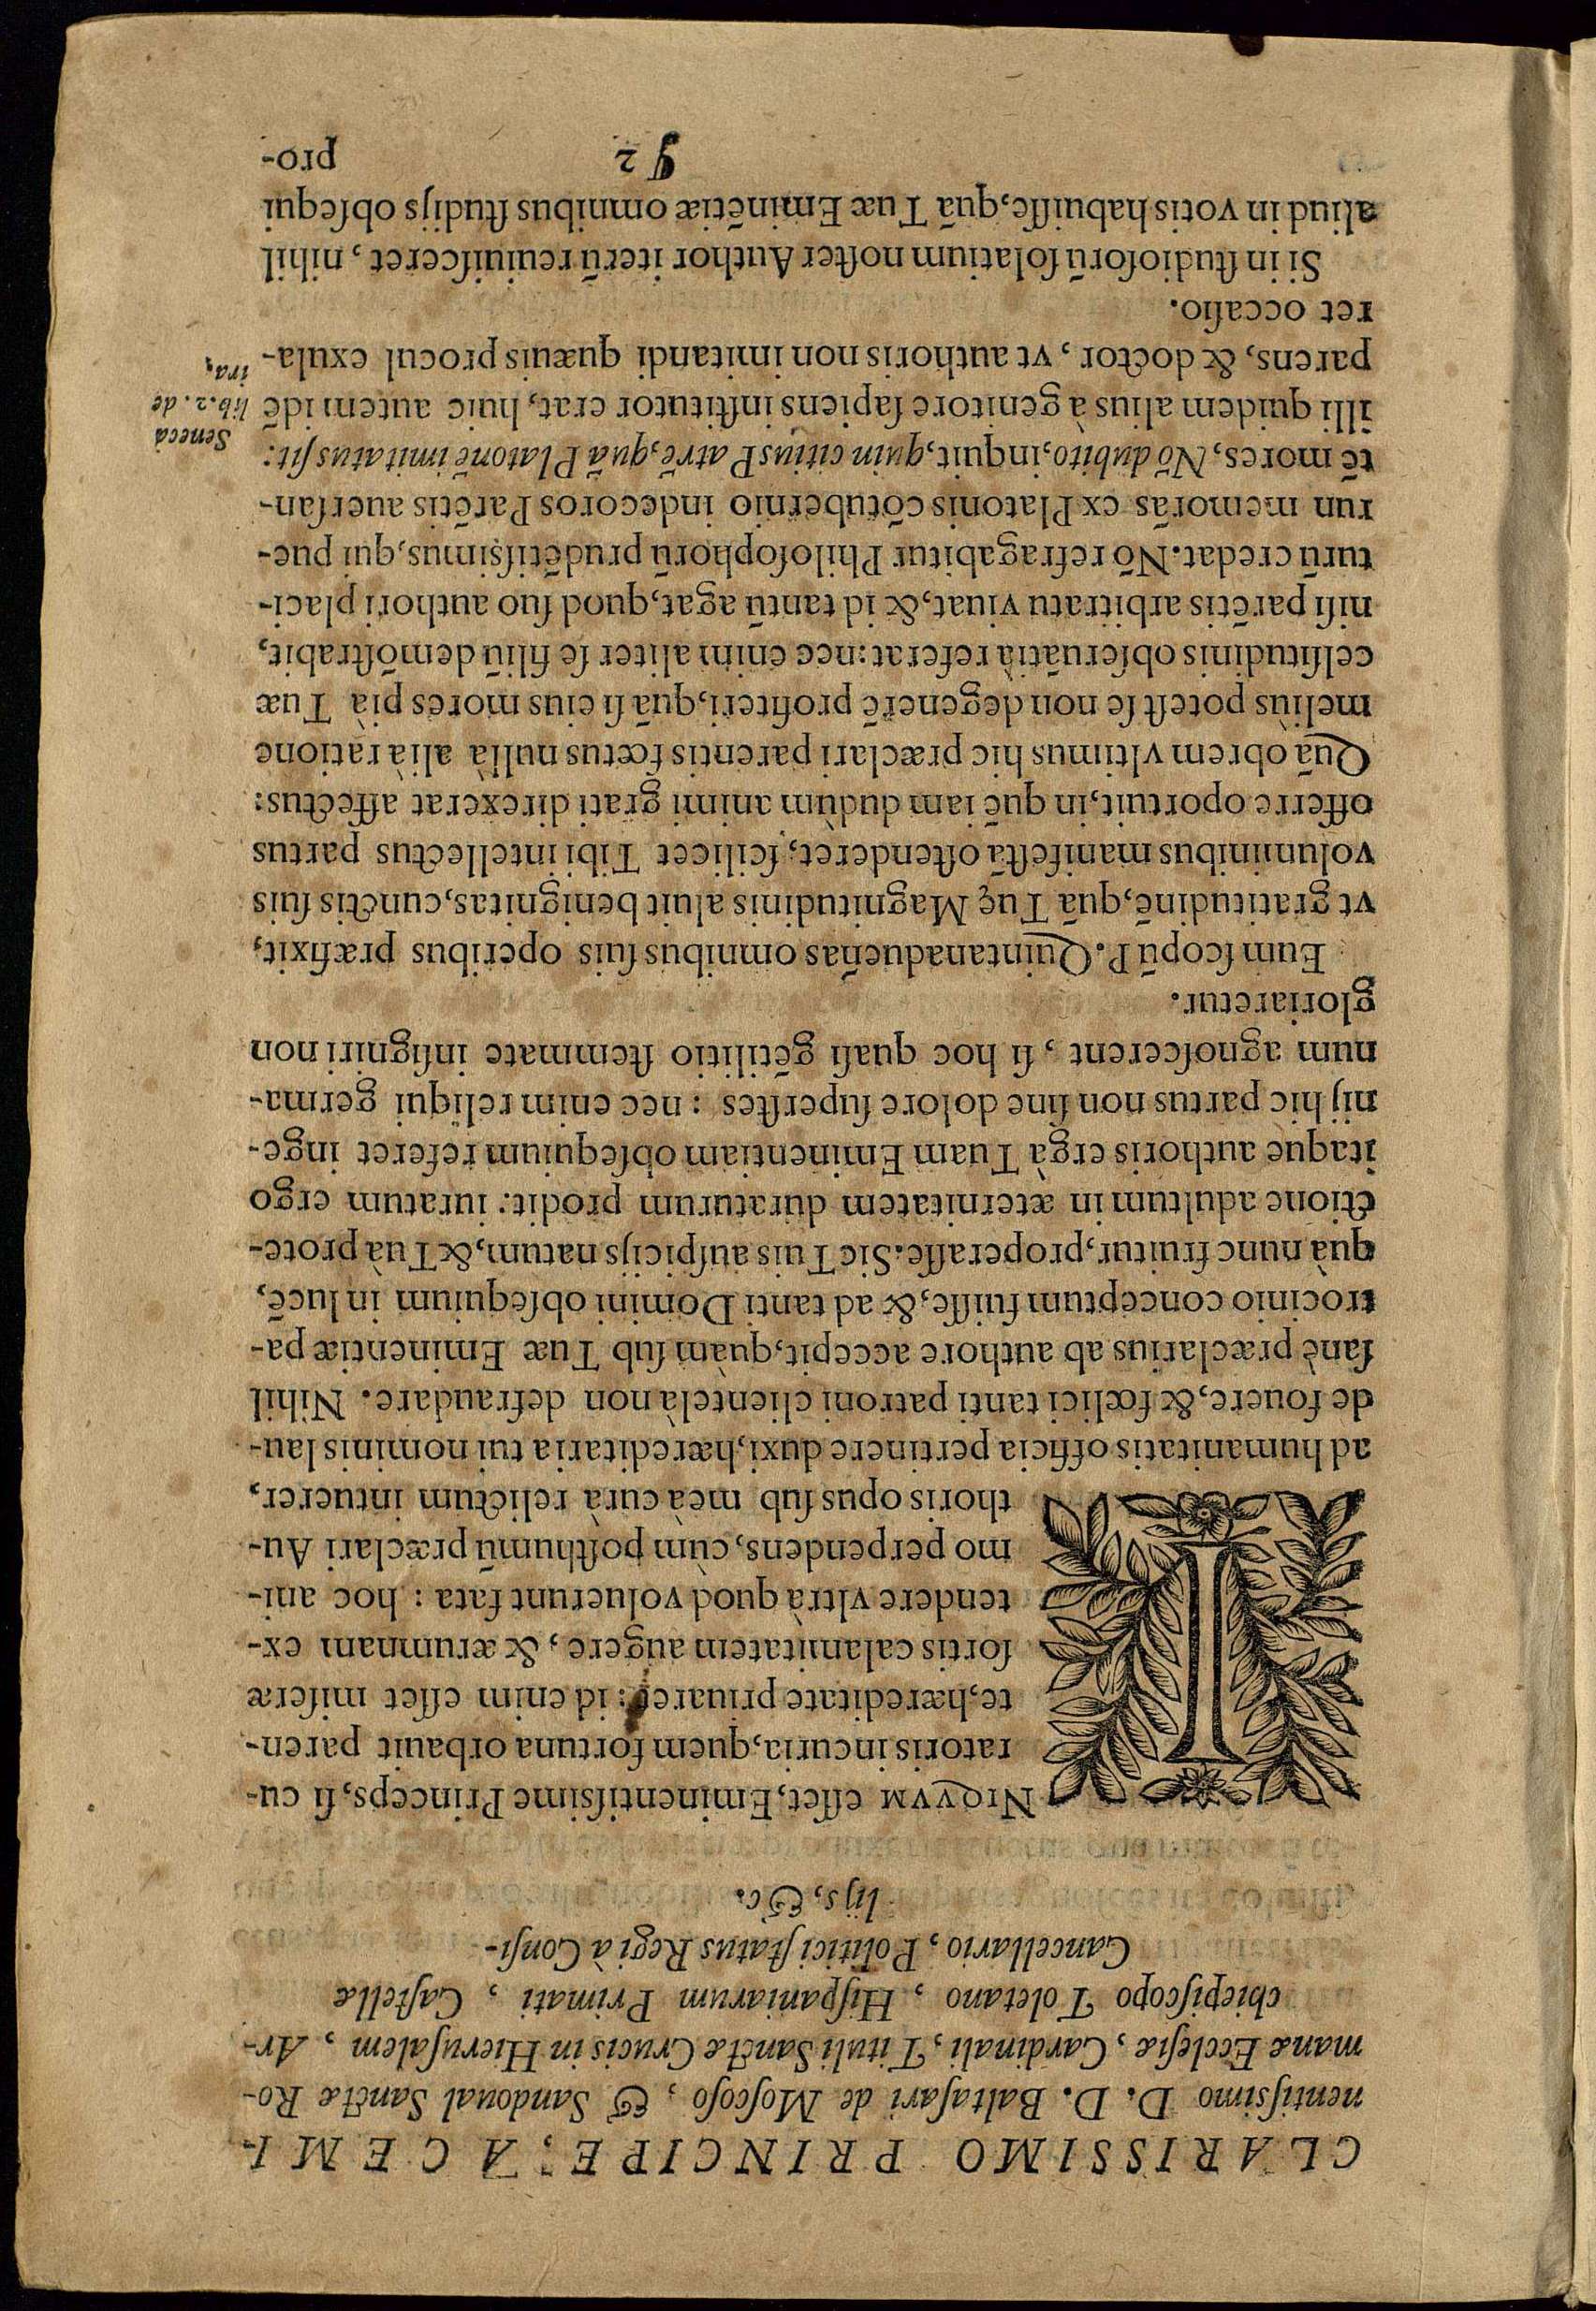 CLARISSIMO PRINCIPE, AC EMI-
nentiſsimo D. D. Baltaſari de Moſcoſo, & Sandoual Sanctæ Ro-
manæ Eccleſiæ, Cardinali, Tituli Sanctæ Crucis in Hieruſalem, Ar-
chiepiſcopo Toletano, Hiſpaniarum Primati, Caſtellæ
Cancellario, Politici ſtatus Regi à Conſi-
lijs, &c.
INIQVVM eſſet, Eminentiſsime Princeps, ſi cu-
ratoris incuria, quem fortuna orbauit paren-
te, hæreditate priuaret: id enim eſſet miſeræ
ſortis calamitatem augere, & ærumnam ex-
tendere vltrà quod voluerunt fata: hoc ani-
mo perpendens, cùm poſthumũ præclari Au-
thoris opus ſub meà curà relictum intuerer,
ad humanitatis officia pertinere duxi, hæreditaria tui nominis lau-
de fouere, & fœlici tanti patroni clientelà non defraudare. Nihil
ſanè præclarius ab authore accepit, quàm ſub Tuæ Eminentiæ pa-
trocinio conceptum fuiſſe, & ad tanti Domini obſequium in lucẽ,
quà nunc fruitur, properaſſe. Sic Tuis auſpicijs natum, & Tuà prote-
ctione adultum in æternitatem duraturum prodit: iuratum ergo
itaque authoris ergà Tuam Eminentiam obſequium referet inge-
nij hic partus non ſine dolore ſuperſtes: nec enim reliqui germa-
num agnoſcerent, ſi hoc quaſi gẽtilitio ſtemmate inſigniri non
gloriaretur.
Eum ſcopũ P. Quintanadueñas omnibus ſuis operibus præfixit,
vt gratitudinẽ, quã Tuę Magnitudinis aluit benignitas, cunctis ſuis
voluminibus manifeſtã oſtenderet; ſcilicet Tibi intellectus partus
offerre oportuit, in quẽ iam dudùm animi grati direxerat affectus:
Quã obrem vltimus hic præclari parentis fœtus nullà alià ratione
meliùs poteſt ſe non degenerẽ profiteri, quã ſi eius mores pià Tuæ
celſitudinis obſeruãtià referat: nec enim aliter ſe filiũ demõſtrabit,
niſi parẽtis arbitratu viuat, & id tantũ agat, quod ſuo authori placi-
turũ credat. Nõ refragabitur Philoſophorũ prudẽtiſsimus, qui pue-
rum memorãs ex Platonis cõtubernio indecoros Parẽtis auerſan-
tẽ mores, Nõ dubito, inquit, quin citiùs Patrẽ, quã Platonẽ imitatus ſit:
illi quidem alius à genitore ſapiens inſtitutor erat, huic autem idẽ
parens, & doctor, vt authoris non imitandi quæuis procul exula-
ret occaſio.
Seneca
lib. 2. de
ira,
Si in ſtudioſorũ ſolatium noſter Author iterũ reuiuiſceret, nihil
aliud in votis habuiſſe, quã Tuæ Eminẽtiæ omnibus ſtudijs obſequi
¶ 2
pro-